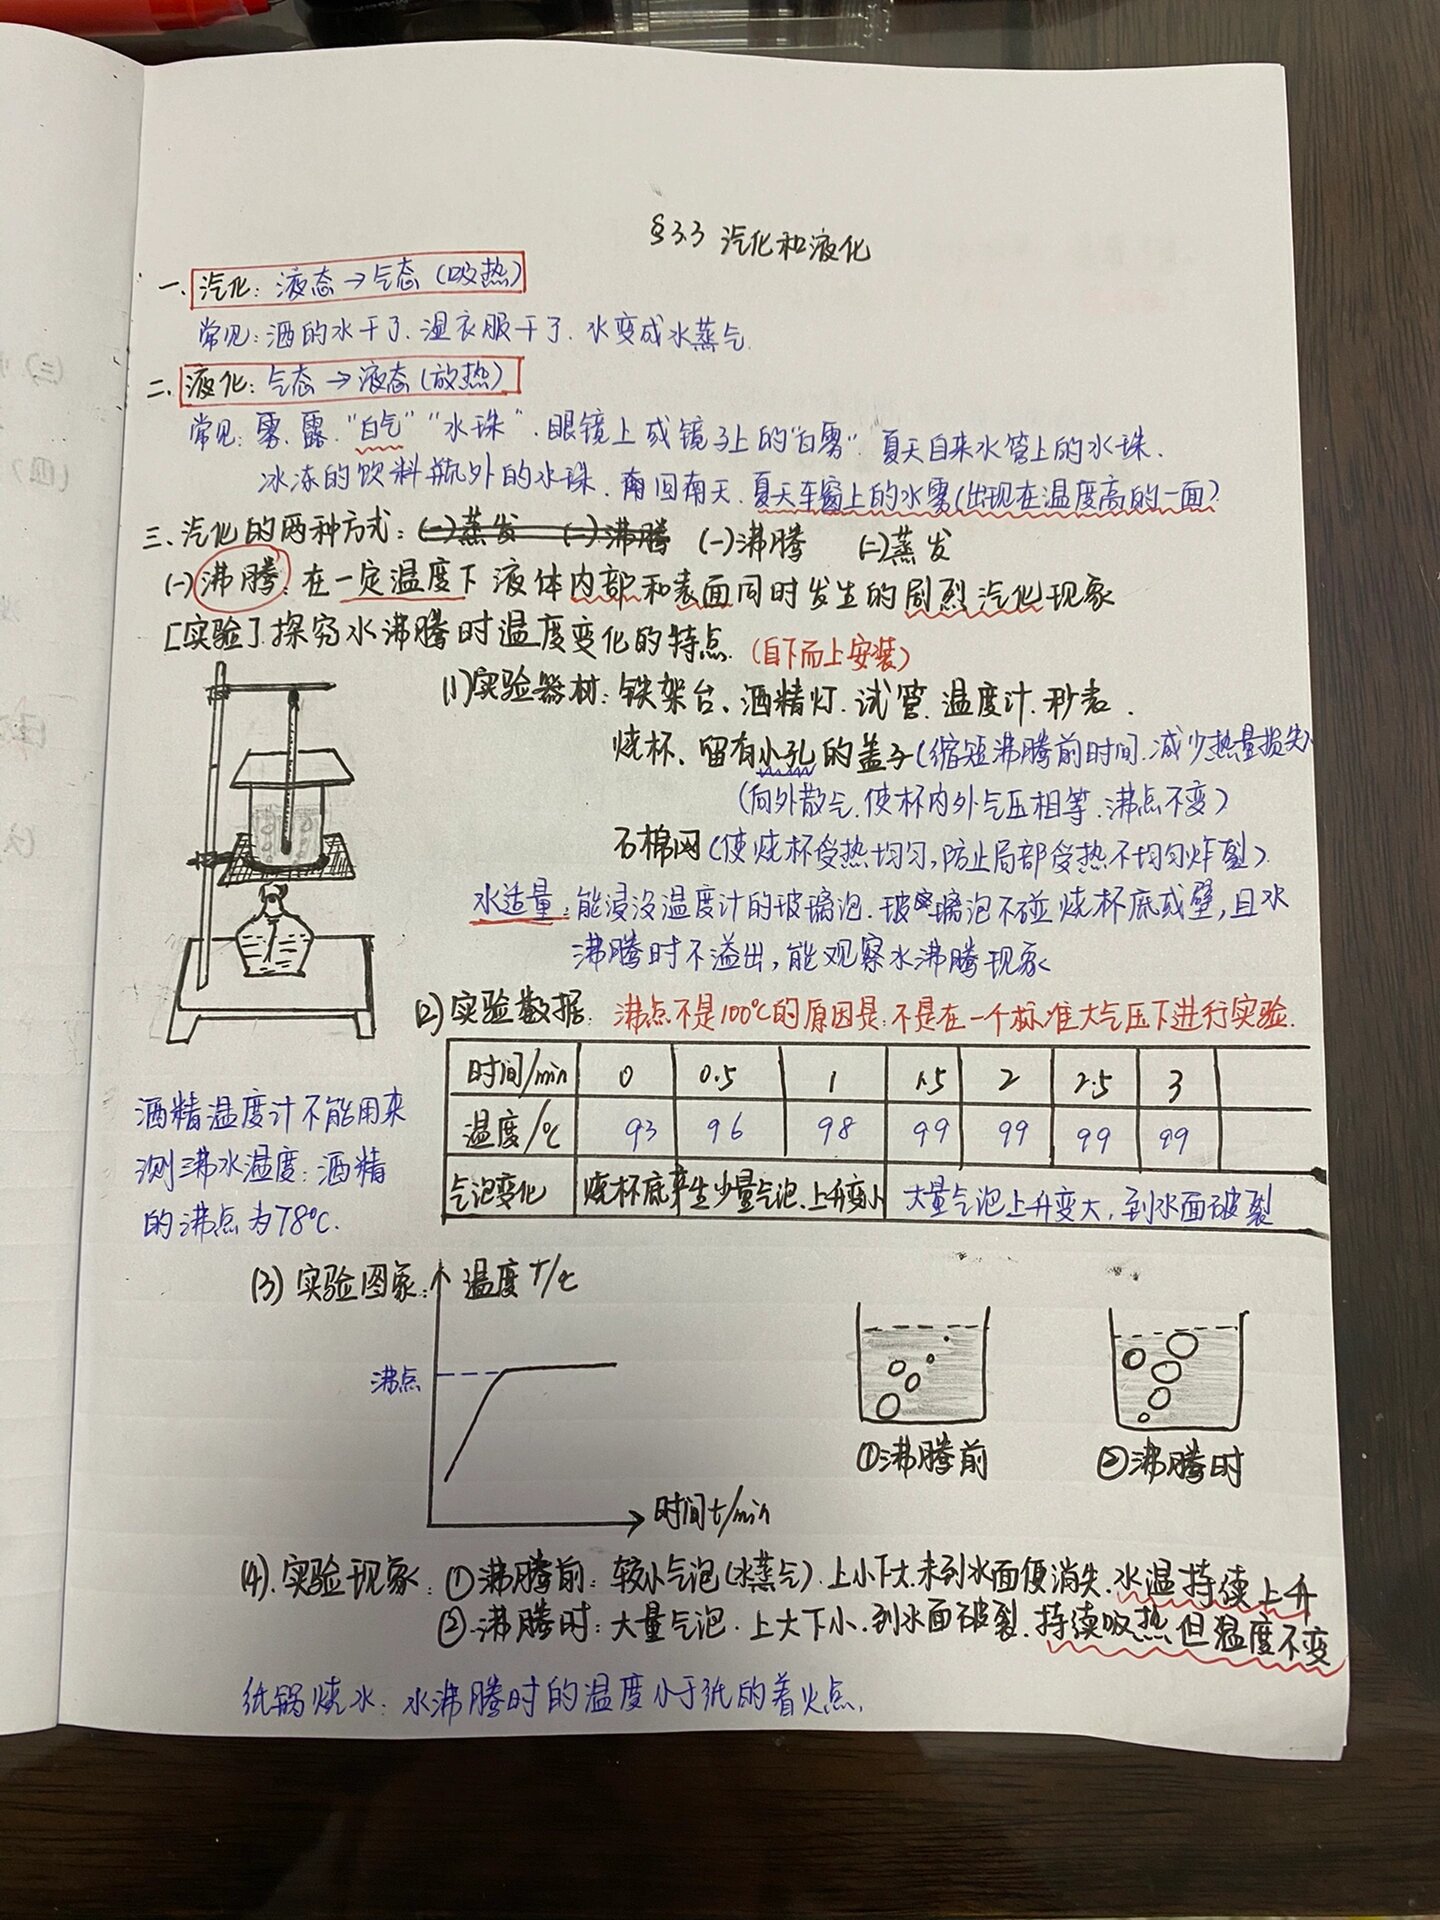 §3.3 汽化和液化
一、汽化：液态→气态（吸热）
常见：洒的水干了、湿衣服干了、水变成水蒸气
二、液化：气态→液态（放热）
常见：雾、露、“白气”“水珠”、眼镜上或镜子上的“白雾”、夏天自来水管上的水珠、
冰冻的饮料瓶外的水珠、南回南天、夏天车窗上的水雾（出现在温度高的一面）
三、汽化的两种方式：(一)蒸发 (二)沸腾 (一)沸腾 (二)蒸发
(一)沸腾：在一定温度下液体内部和表面同时发生的剧烈汽化现象
[实验]．探究水沸腾时温度变化的特点．（自下而上安装）
(1)实验器材：铁架台、酒精灯、试管、温度计、秒表、
烧杯、留有小孔的盖子（缩短沸腾前时间、减少热量损失）
（向外散气、使杯内外气压相等、沸点不变）
石棉网（使烧杯受热均匀，防止局部受热不均匀炸裂）
水适量：能浸没温度计的玻璃泡、玻璃泡不碰烧杯底或壁，且水
沸腾时不溢出，能观察水沸腾现象
(2)实验数据：沸点不是100℃的原因是：不是在一个标准大气压下进行实验．
时间/min 0 0.5 1 1.5 2 2.5 3
温度/℃ 93 96 98 99 99 99 99
气泡变化 烧杯底产生少量气泡、上升变小 大量气泡上升变大，到水面破裂
酒精温度计不能用来
测沸水温度：酒精
的沸点为78℃．
(3)实验图象： 温度T/℃
沸点
时间t/min
①沸腾前 ②沸腾时
(4)．实验现象：①沸腾前：较小气泡（水蒸气）、上小下大、未到水面便消失、水温持续上升
②沸腾时：大量气泡、上大下小、到水面破裂、持续吸热但温度不变
纸锅烧水：水沸腾时的温度小于纸的着火点．